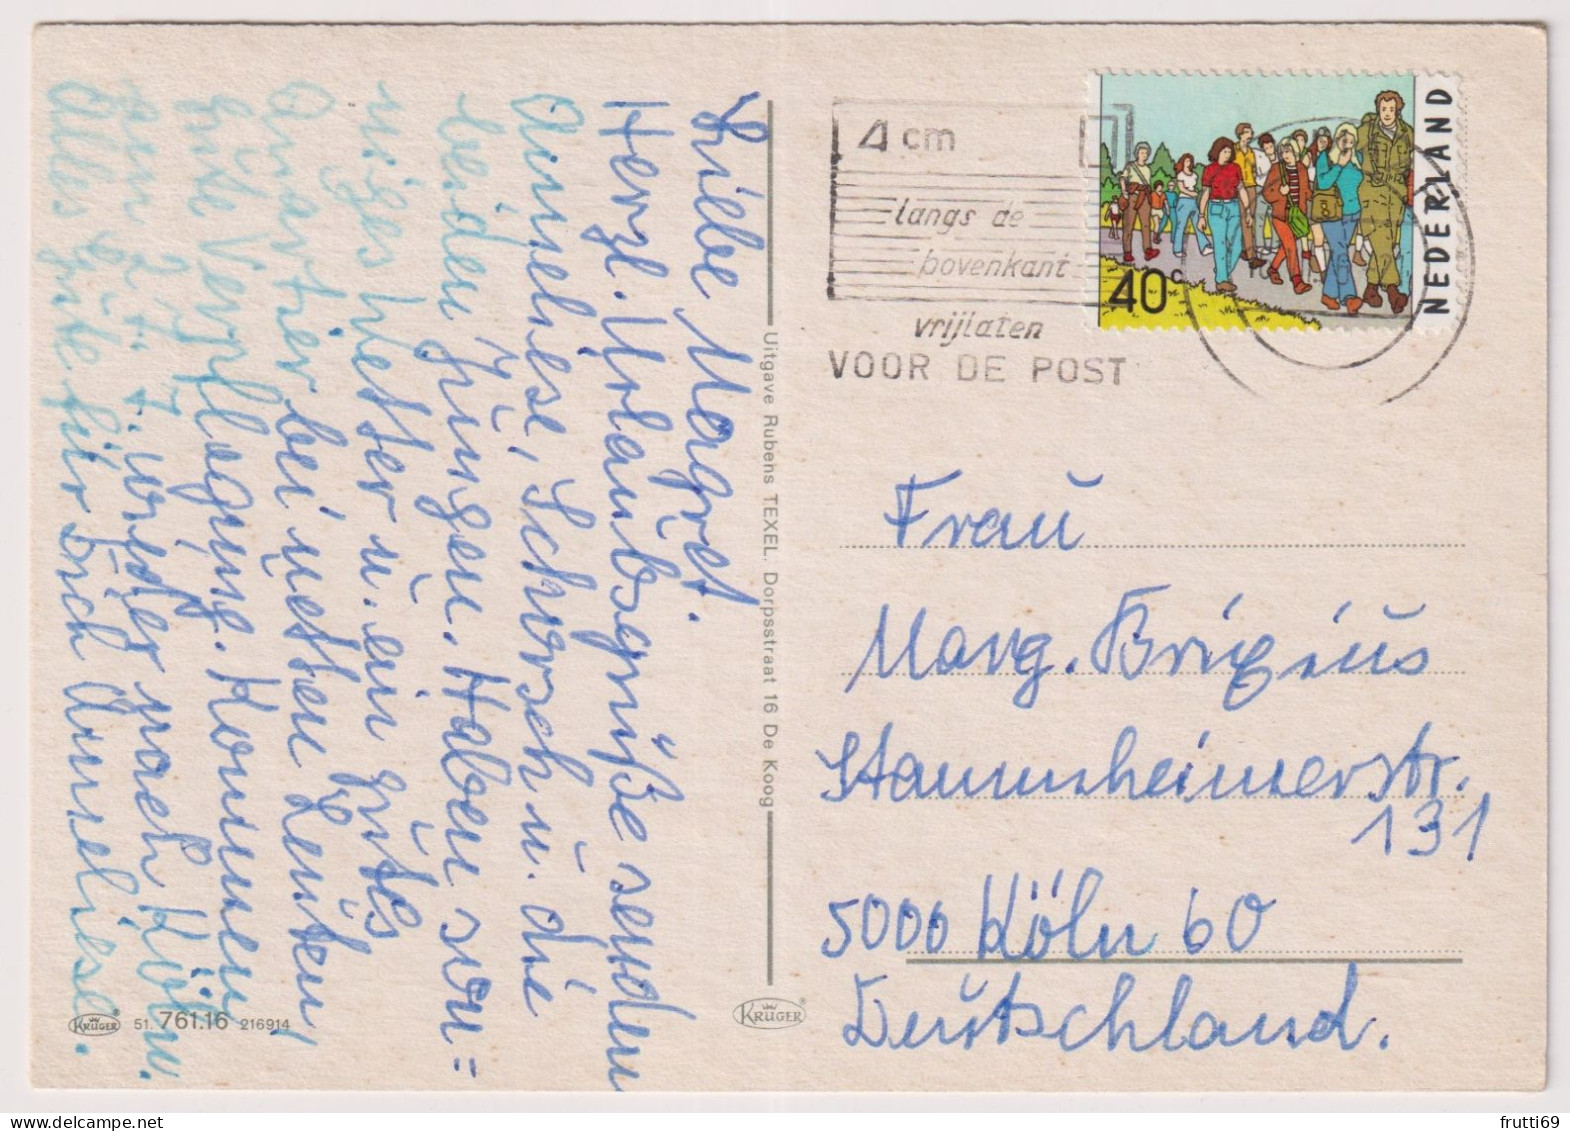 Liebe Magret.
Herzl. Urlaubsgrüße senden
Anneliese, Schorsch u. die
beiden Jungen. Haben son=
niges Wetter u. ein gutes
Quartier bei netten Leuten,
gute Verpflegung. Kommen
am 24.7. wieder nach Köln.
Alles gute für Dich Anneliese.
KRÜGER® 51. 761.16 216914
Uitgave Rubens TEXEL. Dorpsstraat 16 De Koog
KRÜGER®
4 cm
langs de
bovenkant
vrijlaten
VOOR DE POST
40c
NEDERLAND
Frau
Marg. Brixius
Stammheimerstr.
131
5000 Köln 60
Deutschland.
frutti69